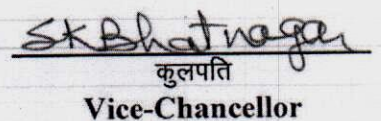 SKBhatnagar
कुलपति
Vice-Chancellor